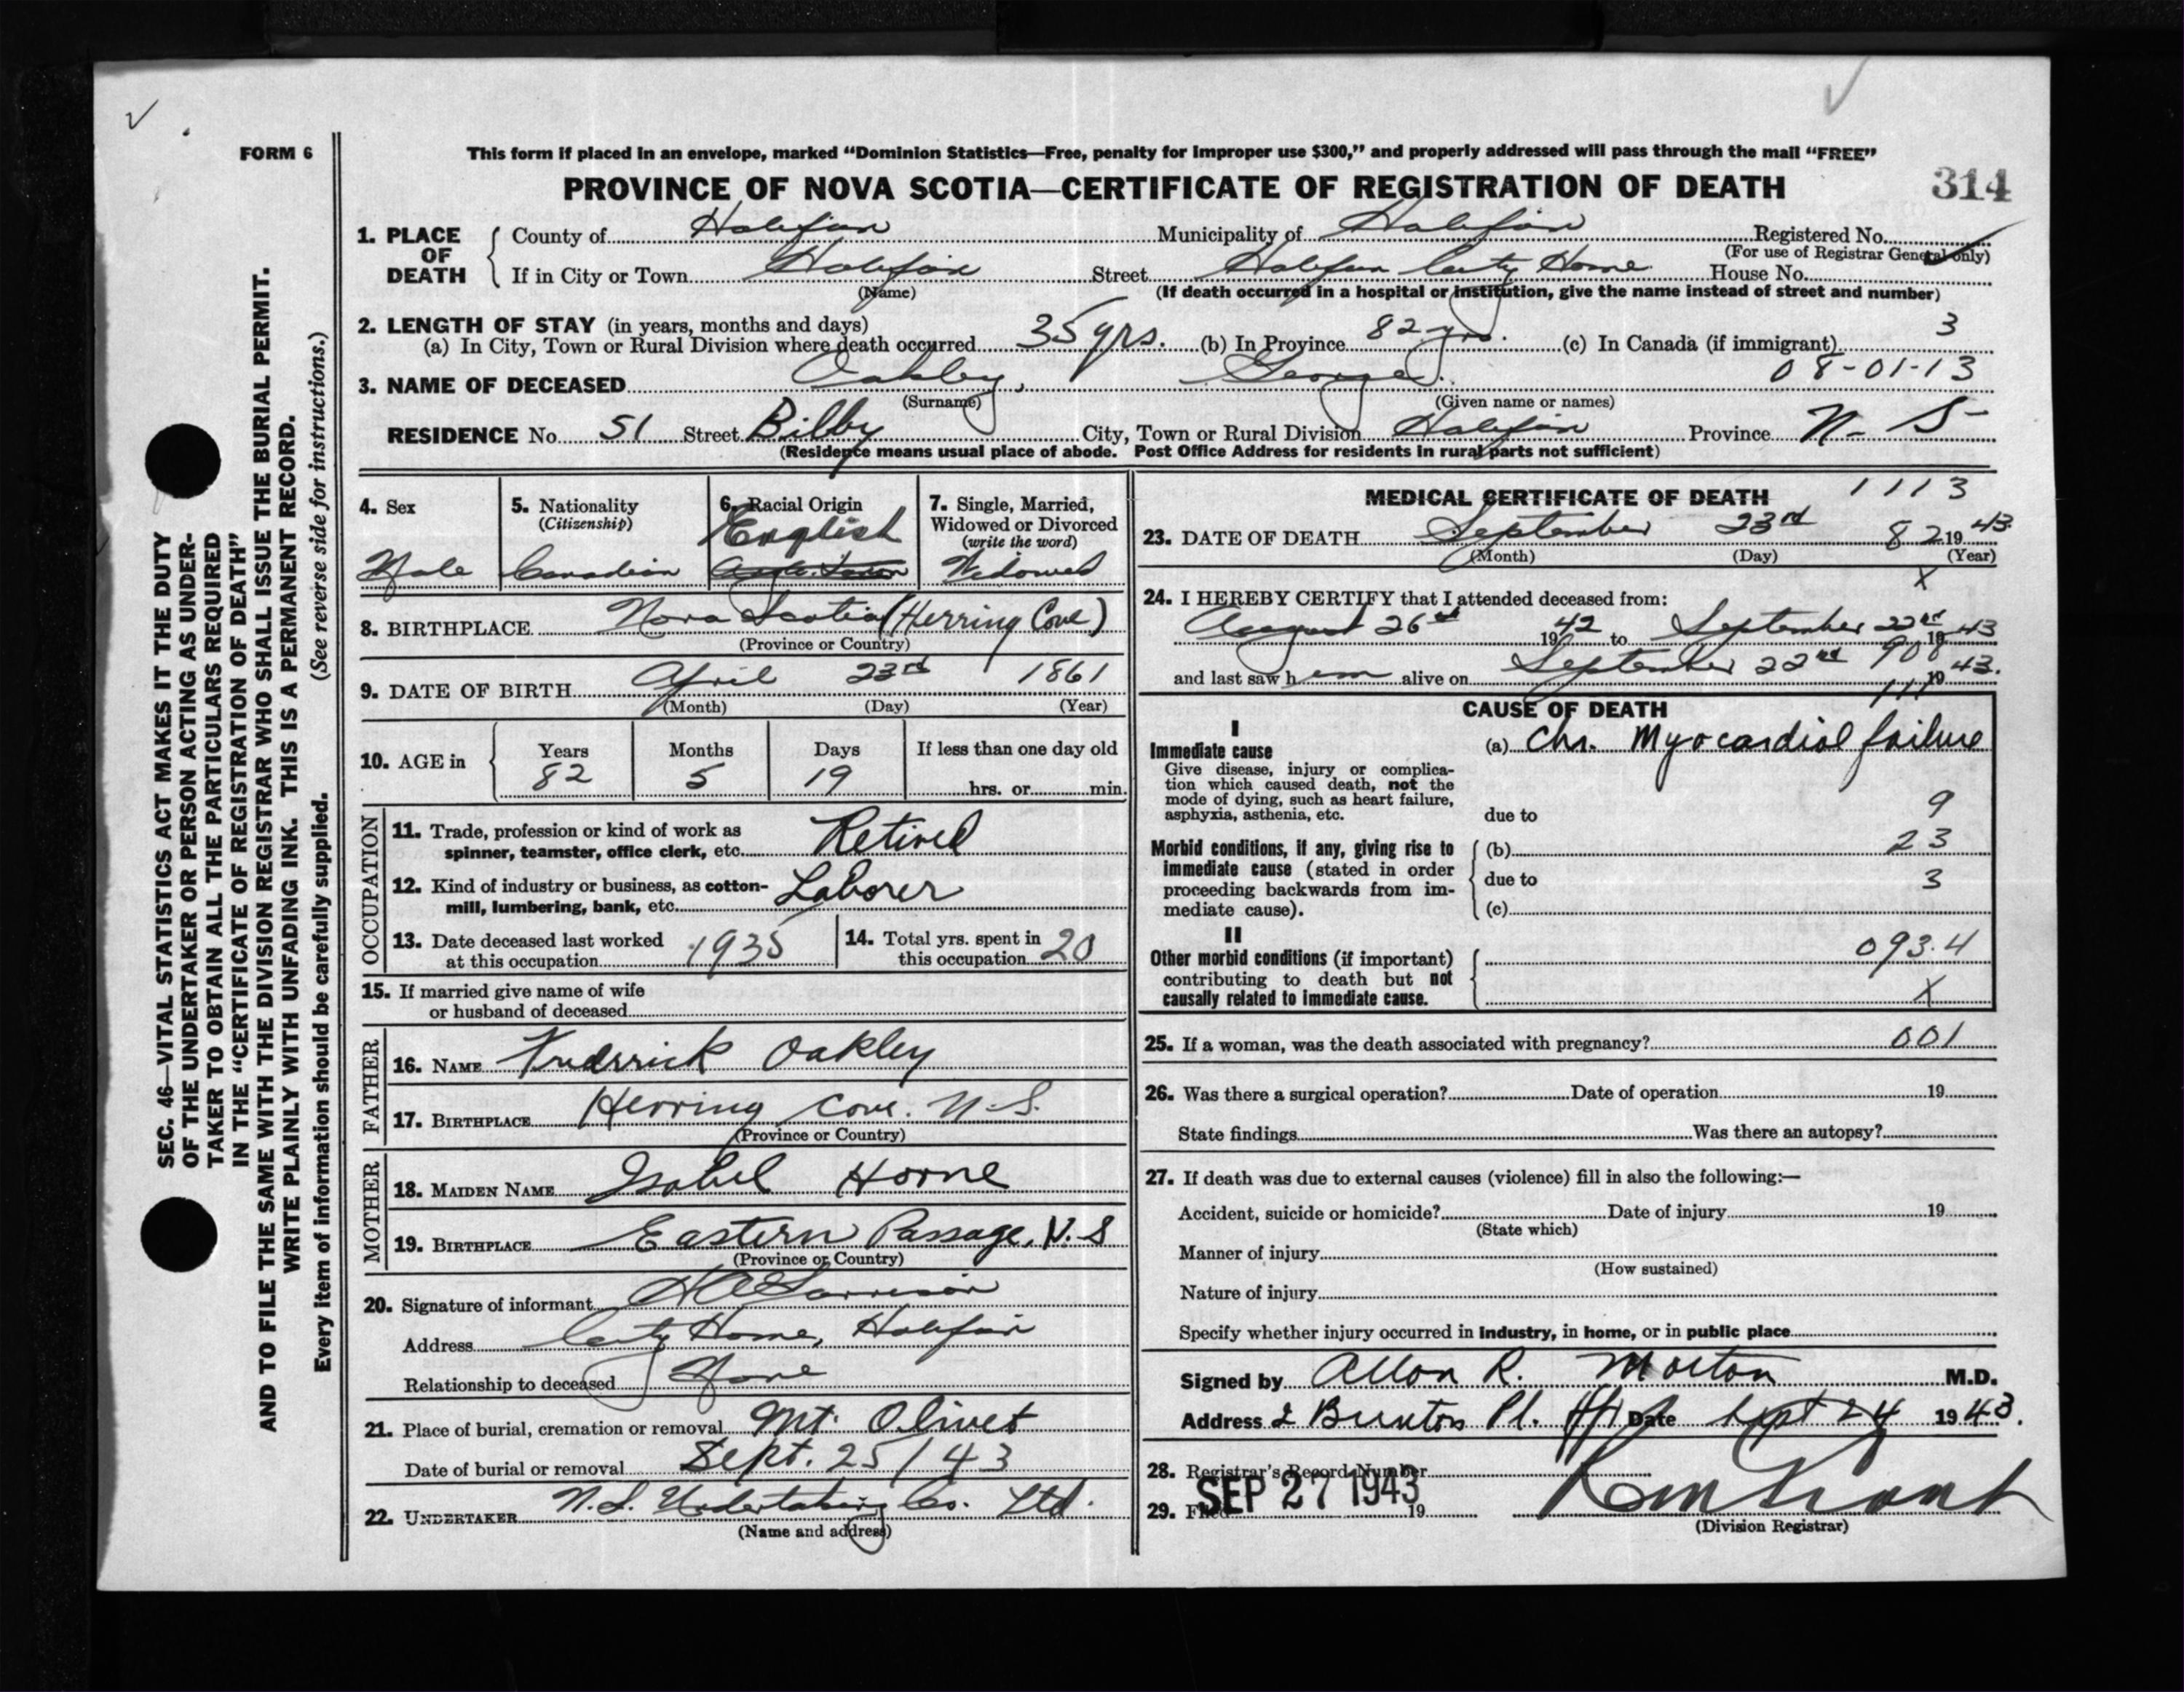 FORM 6
This form if placed in an envelope, marked “Dominion Statistics—Free, penalty for improper use $300,” and properly addressed will pass through the mail “FREE”
PROVINCE OF NOVA SCOTIA—CERTIFICATE OF REGISTRATION OF DEATH
314
1. PLACE OF DEATH
County of Halifax Municipality of Halifax Registered No.
(For use of Registrar General only)
If in City or Town Halifax Street Halifax City Home House No.
(Name) (If death occurred in a hospital or institution, give the name instead of street and number)
2. LENGTH OF STAY (in years, months and days)
(a) In City, Town or Rural Division where death occurred 35 yrs. (b) In Province 82 yrs. (c) In Canada (if immigrant) 3
3. NAME OF DECEASED Oakley, George. 08-01-13
(Surname) (Given name or names)
RESIDENCE No. 51 Street Bilby City, Town or Rural Division Halifax Province N-S-
(Residence means usual place of abode. Post Office Address for residents in rural parts not sufficient)
SEC. 46—VITAL STATISTICS ACT MAKES IT THE DUTY
OF THE UNDERTAKER OR PERSON ACTING AS UNDER-
TAKER TO OBTAIN ALL THE PARTICULARS REQUIRED
IN THE “CERTIFICATE OF REGISTRATION OF DEATH”
AND TO FILE THE SAME WITH THE DIVISION REGISTRAR WHO SHALL ISSUE THE BURIAL PERMIT.
WRITE PLAINLY WITH UNFADING INK. THIS IS A PERMANENT RECORD.
Every item of information should be carefully supplied. (See reverse side for instructions.)
4. Sex
Male
5. Nationality
(Citizenship)
Canadian
6. Racial Origin
English
7. Single, Married,
Widowed or Divorced
(write the word)
Widowed
8. BIRTHPLACE Nova Scotia (Herring Cove)
(Province or Country)
9. DATE OF BIRTH April 23rd 1861
(Month) (Day) (Year)
10. AGE in
Years Months Days If less than one day old
82 5 19 hrs. or min.
OCCUPATION
11. Trade, profession or kind of work as
spinner, teamster, office clerk, etc. Retired
12. Kind of industry or business, as cotton-
mill, lumbering, bank, etc. Laborer
13. Date deceased last worked
at this occupation 1935
14. Total yrs. spent in
this occupation 20
15. If married give name of wife
or husband of deceased
FATHER
16. NAME Fredrrick Oakley
17. BIRTHPLACE Herring Cove. N.S.
(Province or Country)
MOTHER
18. MAIDEN NAME Isabel Horne
19. BIRTHPLACE Eastern Passage, N.S
(Province or Country)
20. Signature of informant
Address City Home, Halifax
Relationship to deceased None
21. Place of burial, cremation or removal Mt. Olivet
Date of burial or removal Sept. 25/43
22. UNDERTAKER N.S. Undertaking Co. Ltd.
(Name and address)
MEDICAL CERTIFICATE OF DEATH 1113
23. DATE OF DEATH September 23rd 82 1943
(Month) (Day) (Year)
X
24. I HEREBY CERTIFY that I attended deceased from:
August 26th 1942 to September 22nd 1943
908
and last saw him alive on September 22nd 1943.
111
CAUSE OF DEATH
I
Immediate cause
Give disease, injury or complica-
tion which caused death, not the
mode of dying, such as heart failure,
asphyxia, asthenia, etc.
(a) Chr. Myocardial failure
due to 9
Morbid conditions, if any, giving rise to
immediate cause (stated in order
proceeding backwards from im-
mediate cause).
(b) 23
due to 3
(c)
II
Other morbid conditions (if important)
contributing to death but not
causally related to immediate cause.
093.4
X
25. If a woman, was the death associated with pregnancy? 001
26. Was there a surgical operation? Date of operation 19
State findings Was there an autopsy?
27. If death was due to external causes (violence) fill in also the following:—
Accident, suicide or homicide? Date of injury 19
(State which)
Manner of injury
(How sustained)
Nature of injury
Specify whether injury occurred in industry, in home, or in public place
Signed by Allon R. Morton M.D.
Address 2 Brunton Pl. Hfx Date Sept 24 1943.
28. Registrar's Record Number
29. Filed SEP 27 1943 19
(Division Registrar)